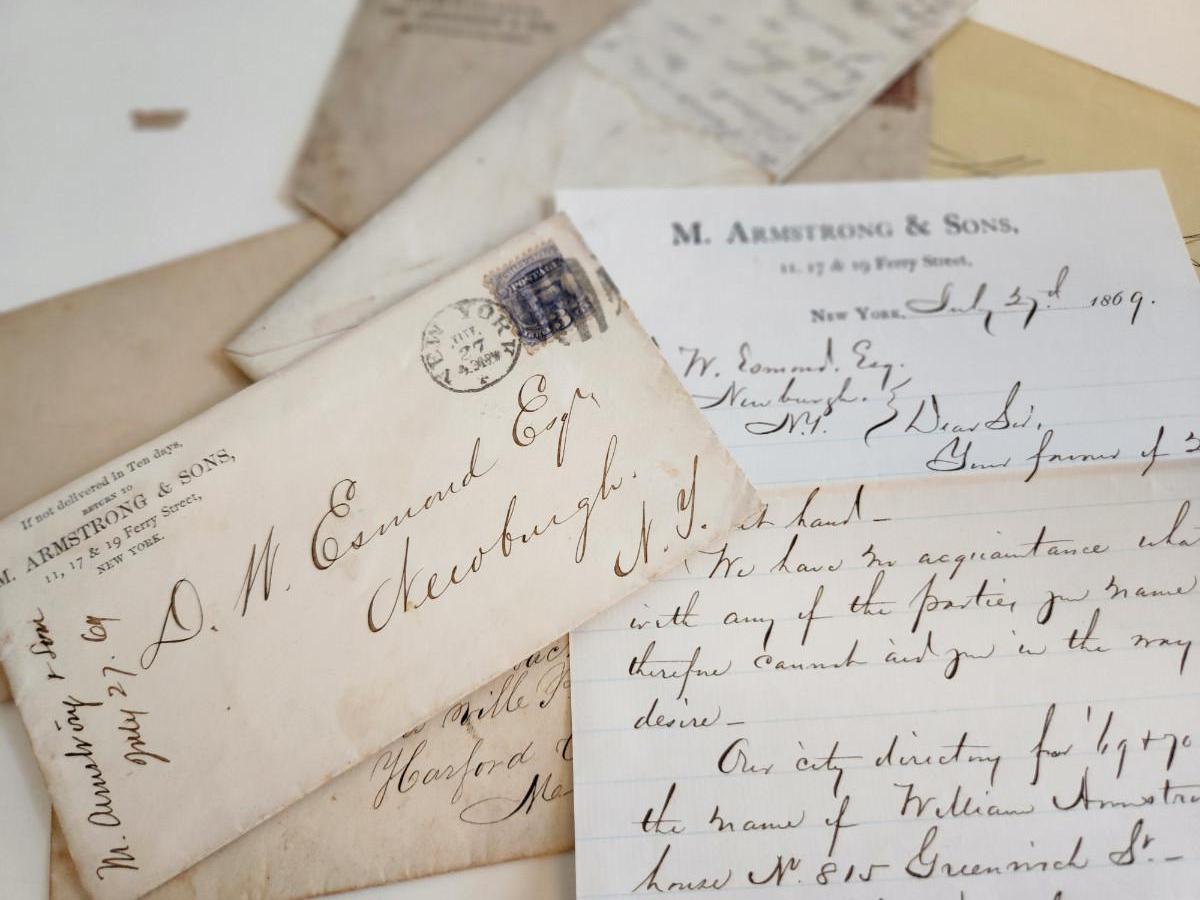 If not delivered in Ten days,
RETURN TO
M. ARMSTRONG & SONS,
11, 17 & 19 Ferry Street,
NEW YORK.
NEW YORK
27
4.30PM
POSTAGE
3
D. W. Esmond Esqr
Newburgh.
N.Y.
M. Armstrong & Son
July 27. 69
ville
Harford
M. ARMSTRONG & SONS,
11, 17 & 19 Ferry Street,
NEW YORK, July 27d 1869.
W. Esmond. Esq.
Newburgh.
N.Y. } Dear Sir,
Your favour of
at hand —
We have no acquaintance
with any of the parties you name
therefore cannot aid you in the way
desire —
Our city directory for '69 & 70
the name of William
house No. 815 Greenwich St. —